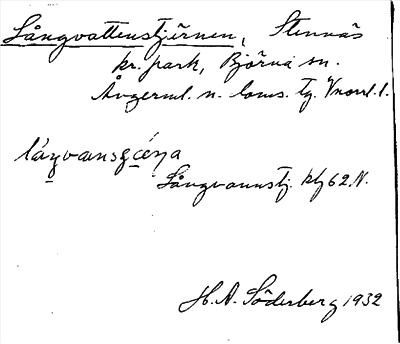 Långvattenstjärnen, Stennäs
kr. park, Björna sn.
Ångerml. n. doms. tg. Vnorrl. l.
Långvannstj. kbl 62 N.
H. A. Söderberg 1932